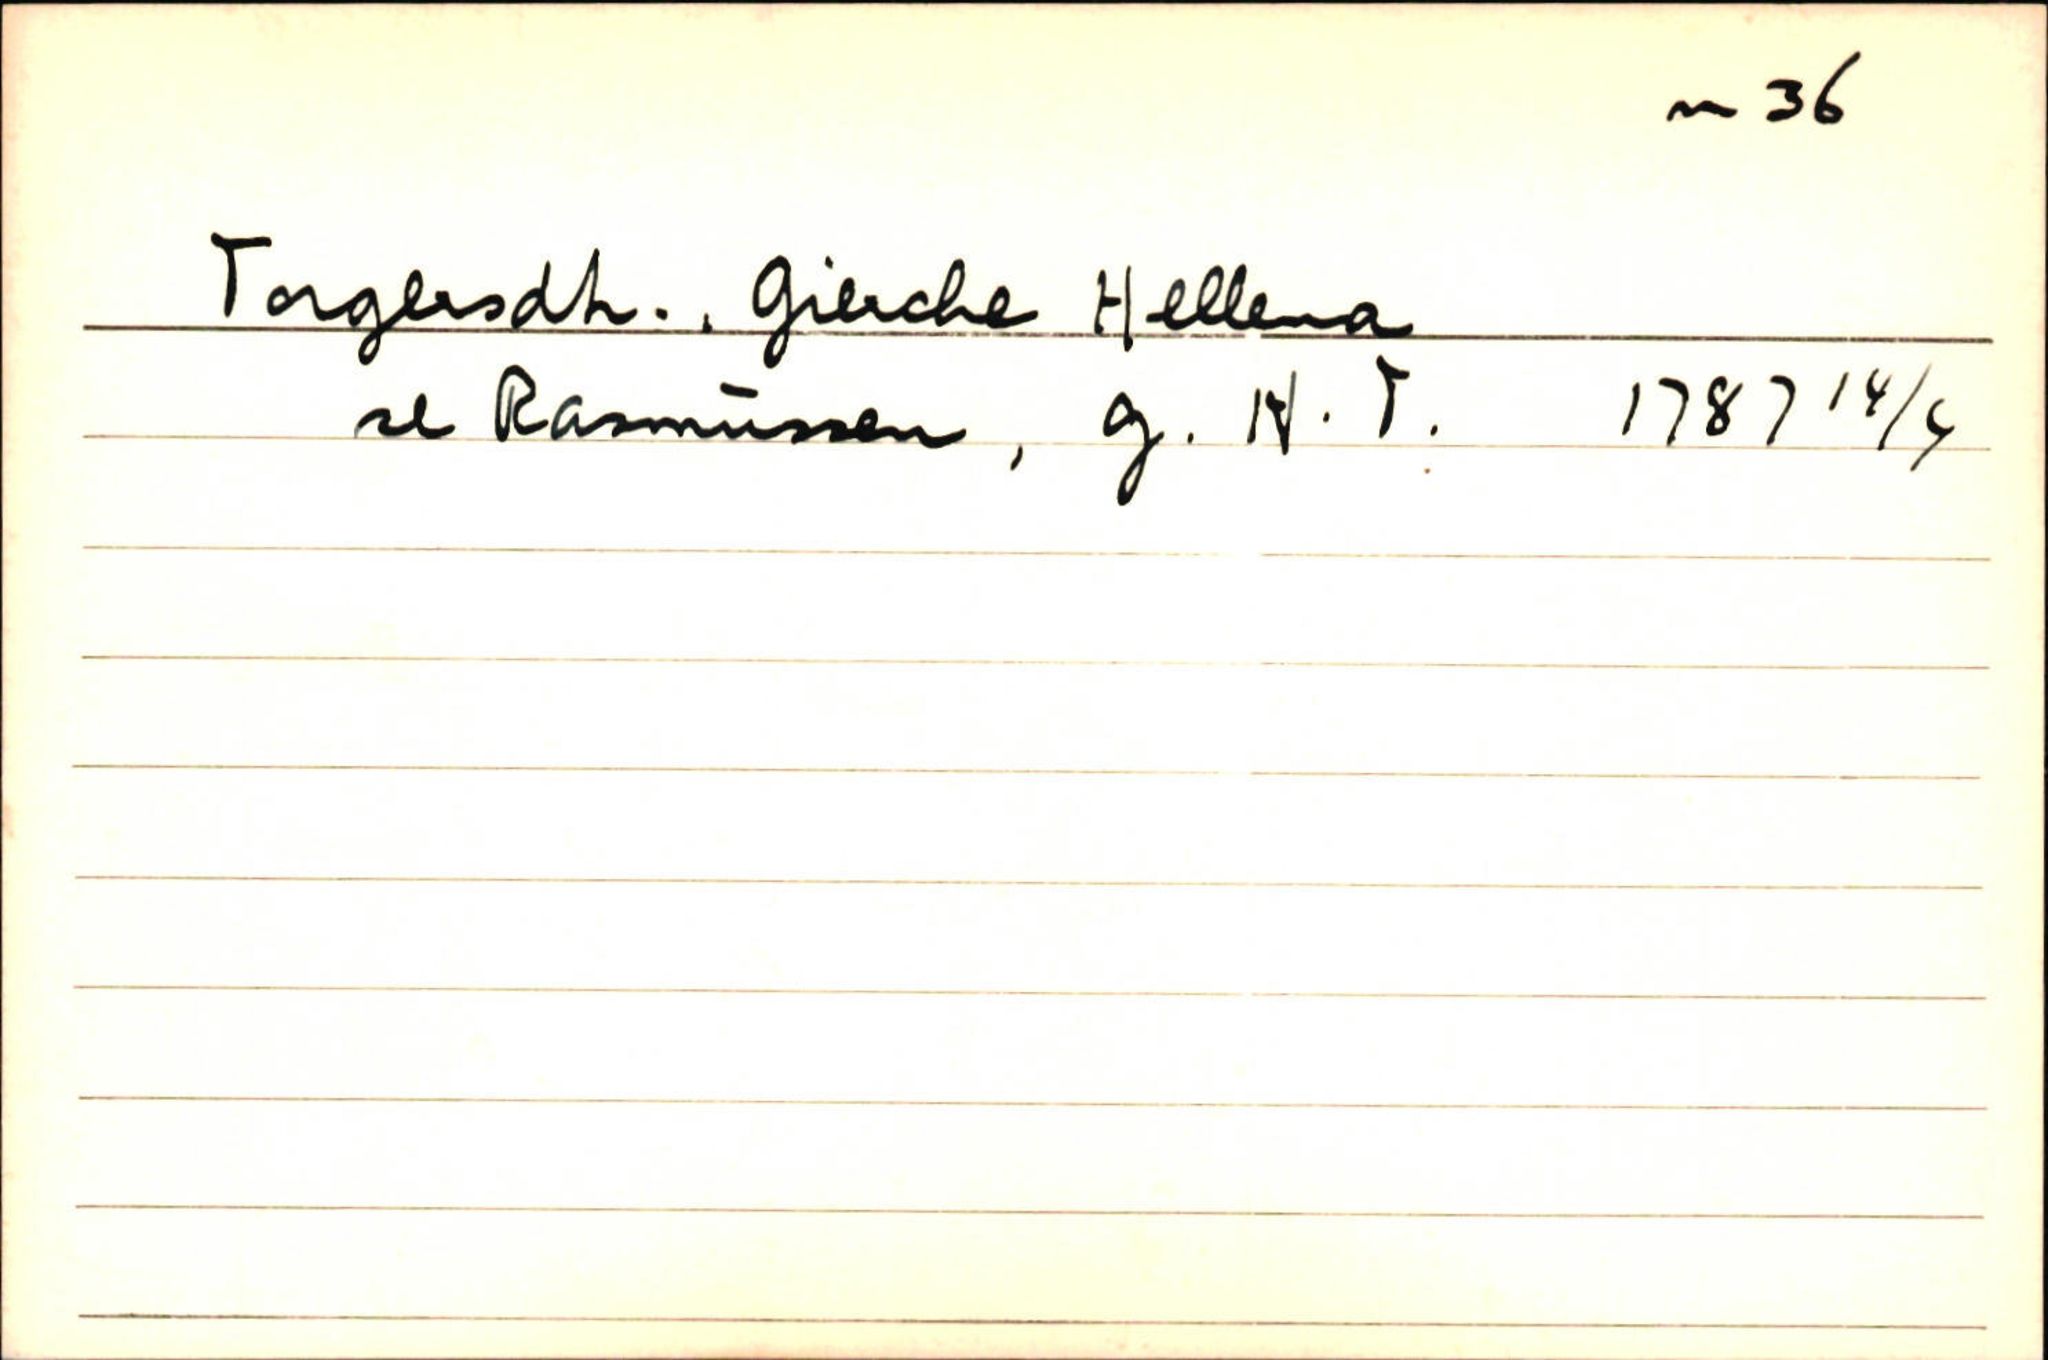 m 36
Torgersdtr., Gierche Hellena
se Rasmussen, G. H. T. 1787 14/4